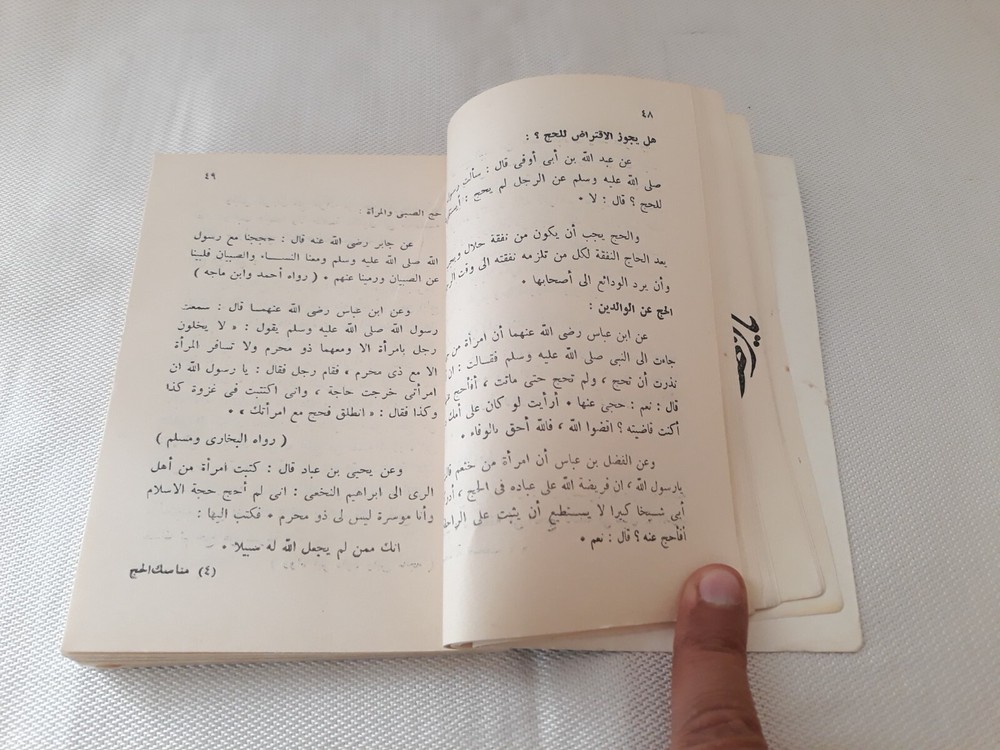 ٤٨
هل يجوز الاقتراض للحج ؟ :
عن عبد الله بن أبى أوفى قال : سألت رسول
صلى الله عليه وسلم عن الرجل لم يحج :
للحج ؟ قال : لا •
والحج يجب أن يكون من نفقة حلال
يعد الحاج النفقة لكل من تلزمه نفقته الى وقت
وأن يرد الودائع الى أصحابها •
الحج عن الوالدين :
عن ابن عباس رضى الله عنهما أن امرأة من
جاءت الى النبى صلى الله عليه وسلم فقالت :
نذرت أن تحج ، ولم تحج حتى ماتت ، أفأحج
قال : نعم : حجى عنها • أرأيت لو كان على أمك
أكنت قاضيته ؟ اقضوا الله ، فالله أحق بالوفاء •
وعن الفضل بن عباس أن امرأة من خثعم
يارسول الله ، ان فريضة الله على عباده فى الحج ،
أبى شيخا كبيرا لا يستطيع أن يثبت على
أفأحج عنه ؟ قال : نعم •
٤٩
حج الصبى والمرأة :
عن جابر رضى الله عنه قال : حججنا مع رسول
الله صلى الله عليه وسلم ومعنا النساء والصبيان فلبينا
عن الصبيان ورمينا عنهم • ( رواه أحمد وابن ماجه )
وعن ابن عباس رضى الله عنهما قال : سمعت
رسول الله صلى الله عليه وسلم يقول : « لا يخلون
رجل بامرأة الا ومعهما ذو محرم ولا تسافر المرأة
الا مع ذى محرم ، فقام رجل فقال : يا رسول الله ان
امرأتى خرجت حاجة ، وانى اكتتبت فى غزوة كذا
وكذا فقال : « انطلق فحج مع امرأتك » •
( رواه البخارى ومسلم )
وعن يحيى بن عباد قال : كتبت امرأة من أهل
الرى الى ابراهيم النخعى : انى لم أحج حجة الاسلام
وأنا موسرة ليس لى ذو محرم • فكتب اليها :
انك ممن لم يجعل الله له سبيلا •
(٤) مناسك الحج